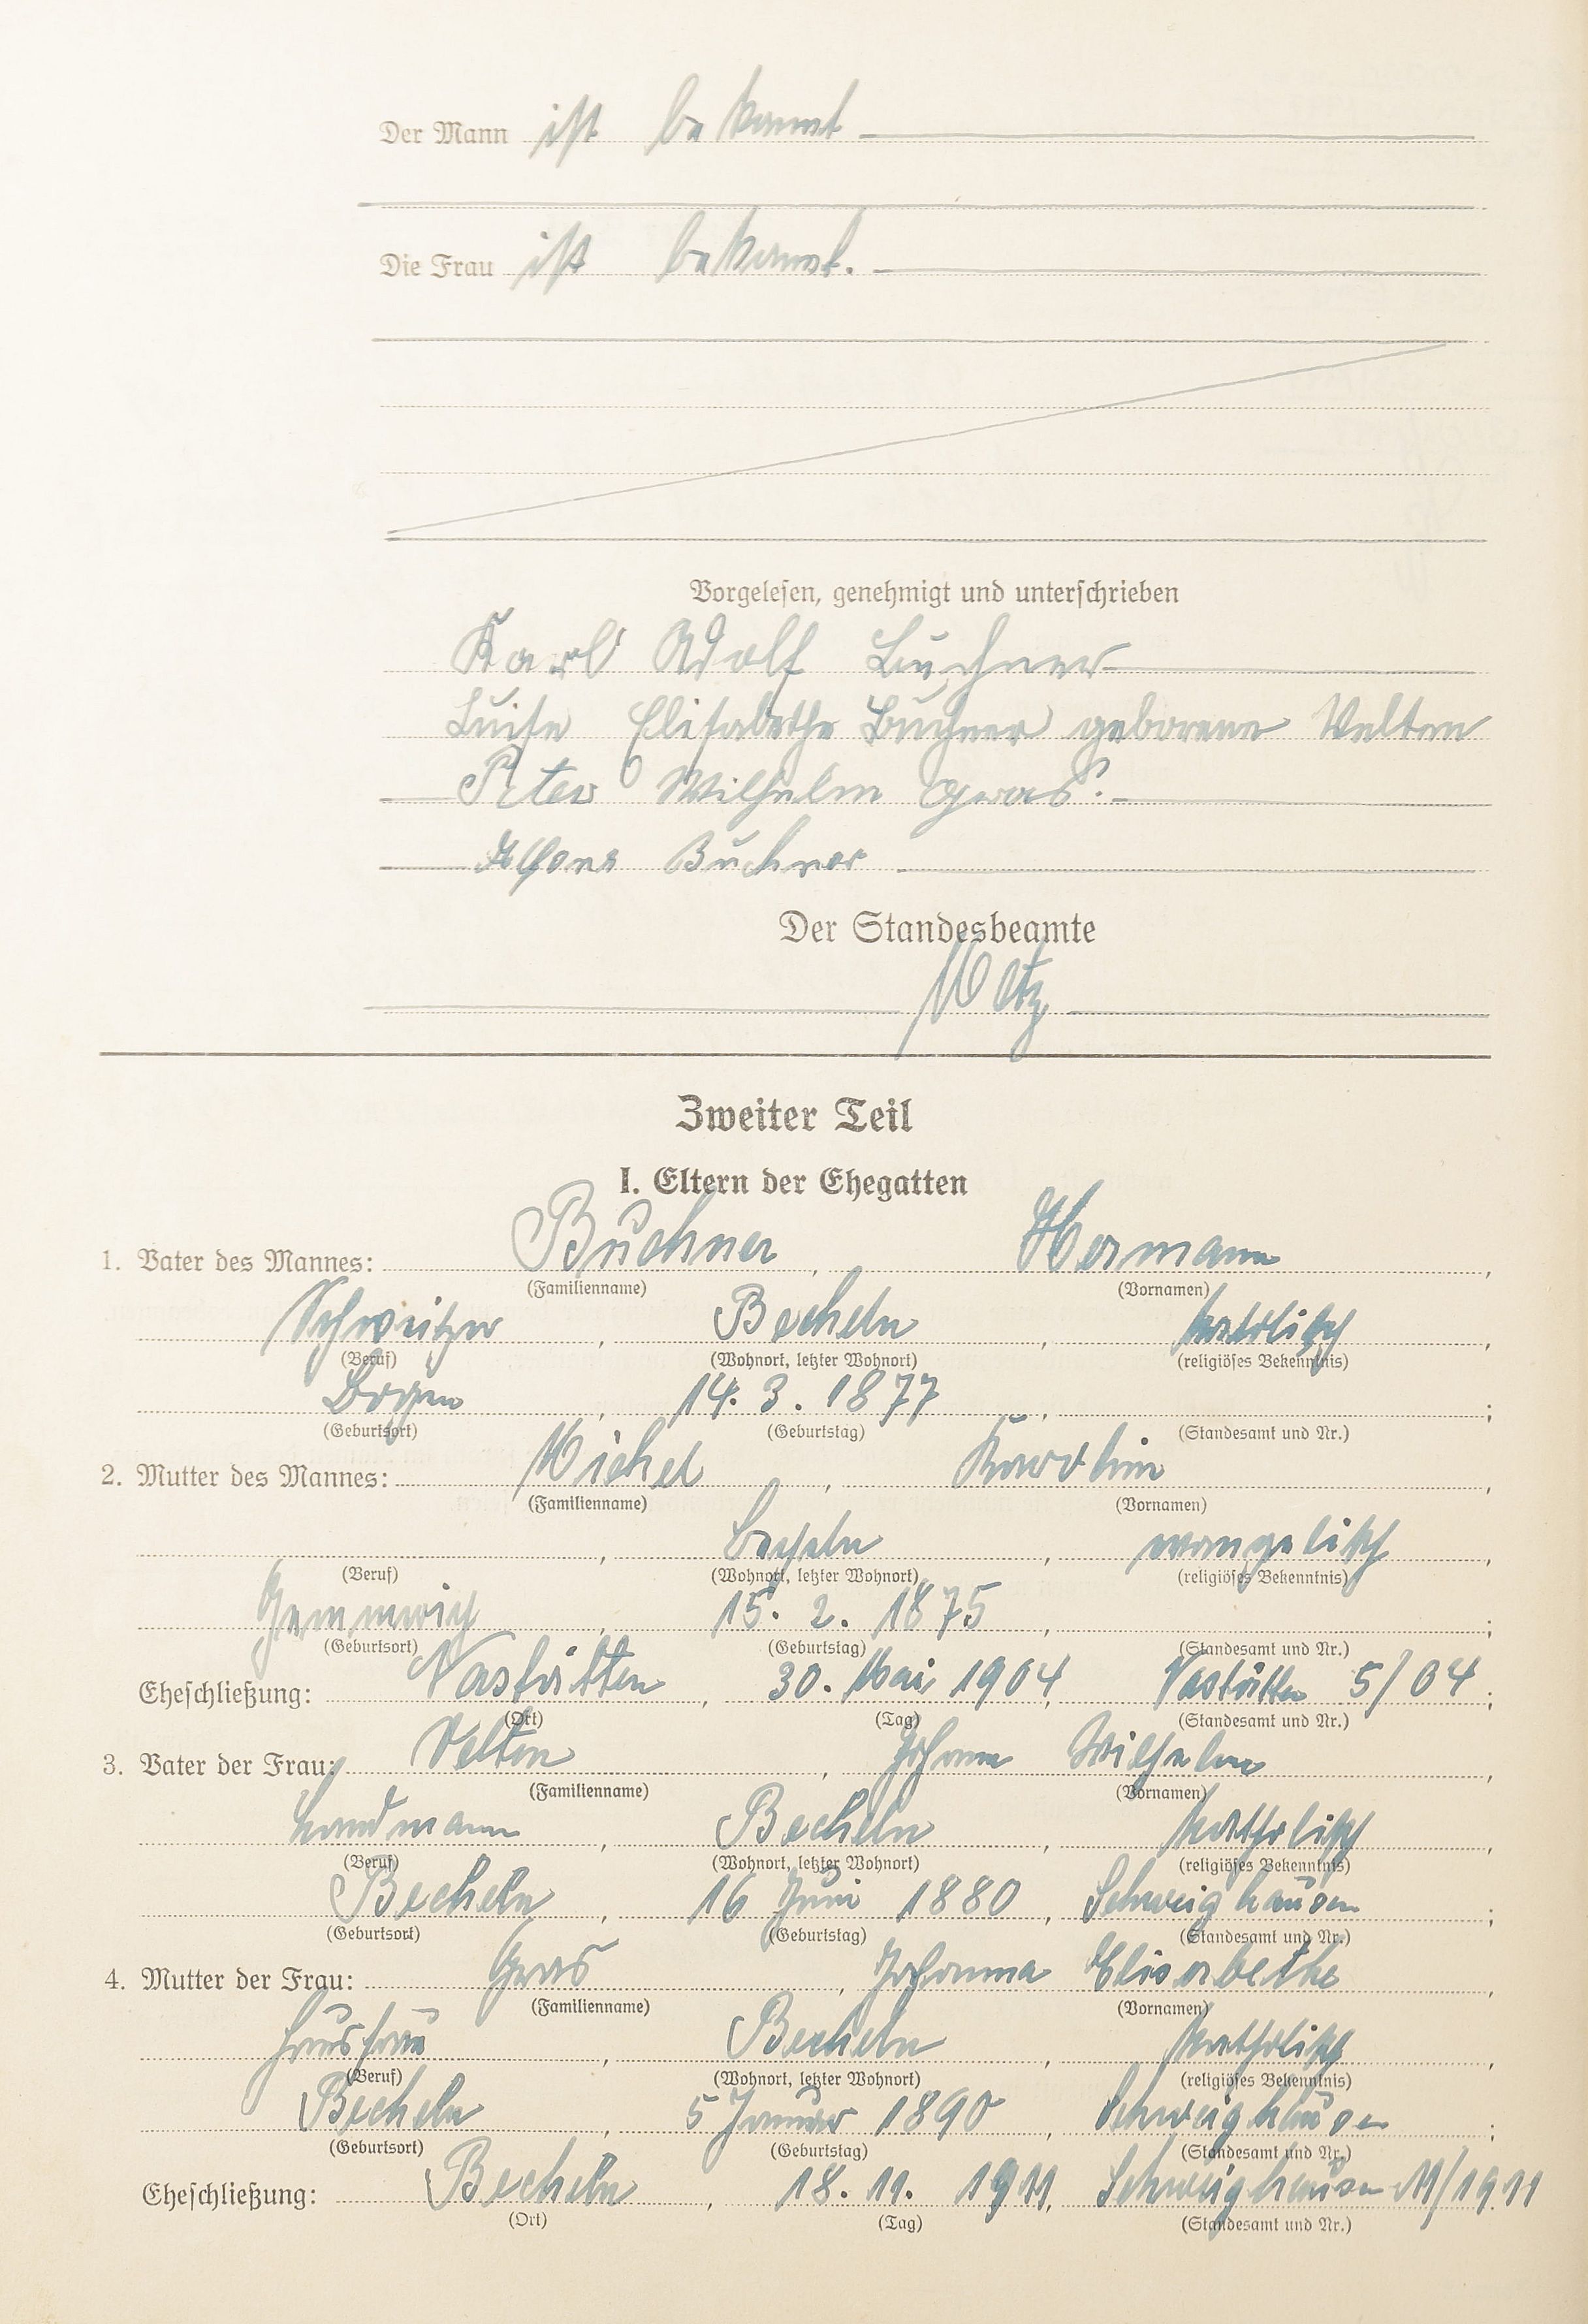 Der Mann ist bekannt
Die Frau ist bekannt.
Vorgelesen, genehmigt und unterschrieben
Karl Adolf Buchner
Luise Elisabethe Buchner geborene Velten
Peter Wilhelm Gras.
Alfons Buchner
Der Standesbeamte
Metz
Zweiter Teil
I. Eltern der Ehegatten
1. Vater des Mannes: Buchner, Hermann,
(Familienname) (Vornamen)
Schweitzer, Becheln, katolisch,
(Beruf) (Wohnort, letzter Wohnort) (religiöses Bekenntnis)
Bogen, 14. 3. 1877, ;
(Geburtsort) (Geburtstag) (Standesamt und Nr.)
2. Mutter des Mannes: Michel, Karolin,
(Familienname) (Vornamen)
, Becheln, evangelisch,
(Beruf) (Wohnort, letzter Wohnort) (religiöses Bekenntnis)
Gemmrich, 15. 2. 1875, ;
(Geburtsort) (Geburtstag) (Standesamt und Nr.)
Eheschließung: Nastätten, 30. Mai 1904, Nastätten 5/04;
(Ort) (Tag) (Standesamt und Nr.)
3. Vater der Frau: Velten, Johann Wilhelm,
(Familienname) (Vornamen)
Landmann, Becheln, katholisch,
(Beruf) (Wohnort, letzter Wohnort) (religiöses Bekenntnis)
Becheln, 16 Juni 1880, Schweighausen;
(Geburtsort) (Geburtstag) (Standesamt und Nr.)
4. Mutter der Frau: Gras, Johanna Elisabethe,
(Familienname) (Vornamen)
Hausfrau, Becheln, katholisch,
(Beruf) (Wohnort, letzter Wohnort) (religiöses Bekenntnis)
Becheln, 5 Januar 1890, Schweighausen;
(Geburtsort) (Geburtstag) (Standesamt und Nr.)
Eheschließung: Becheln, 18. 11. 1911, Schweighausen 11/1911
(Ort) (Tag) (Standesamt und Nr.)